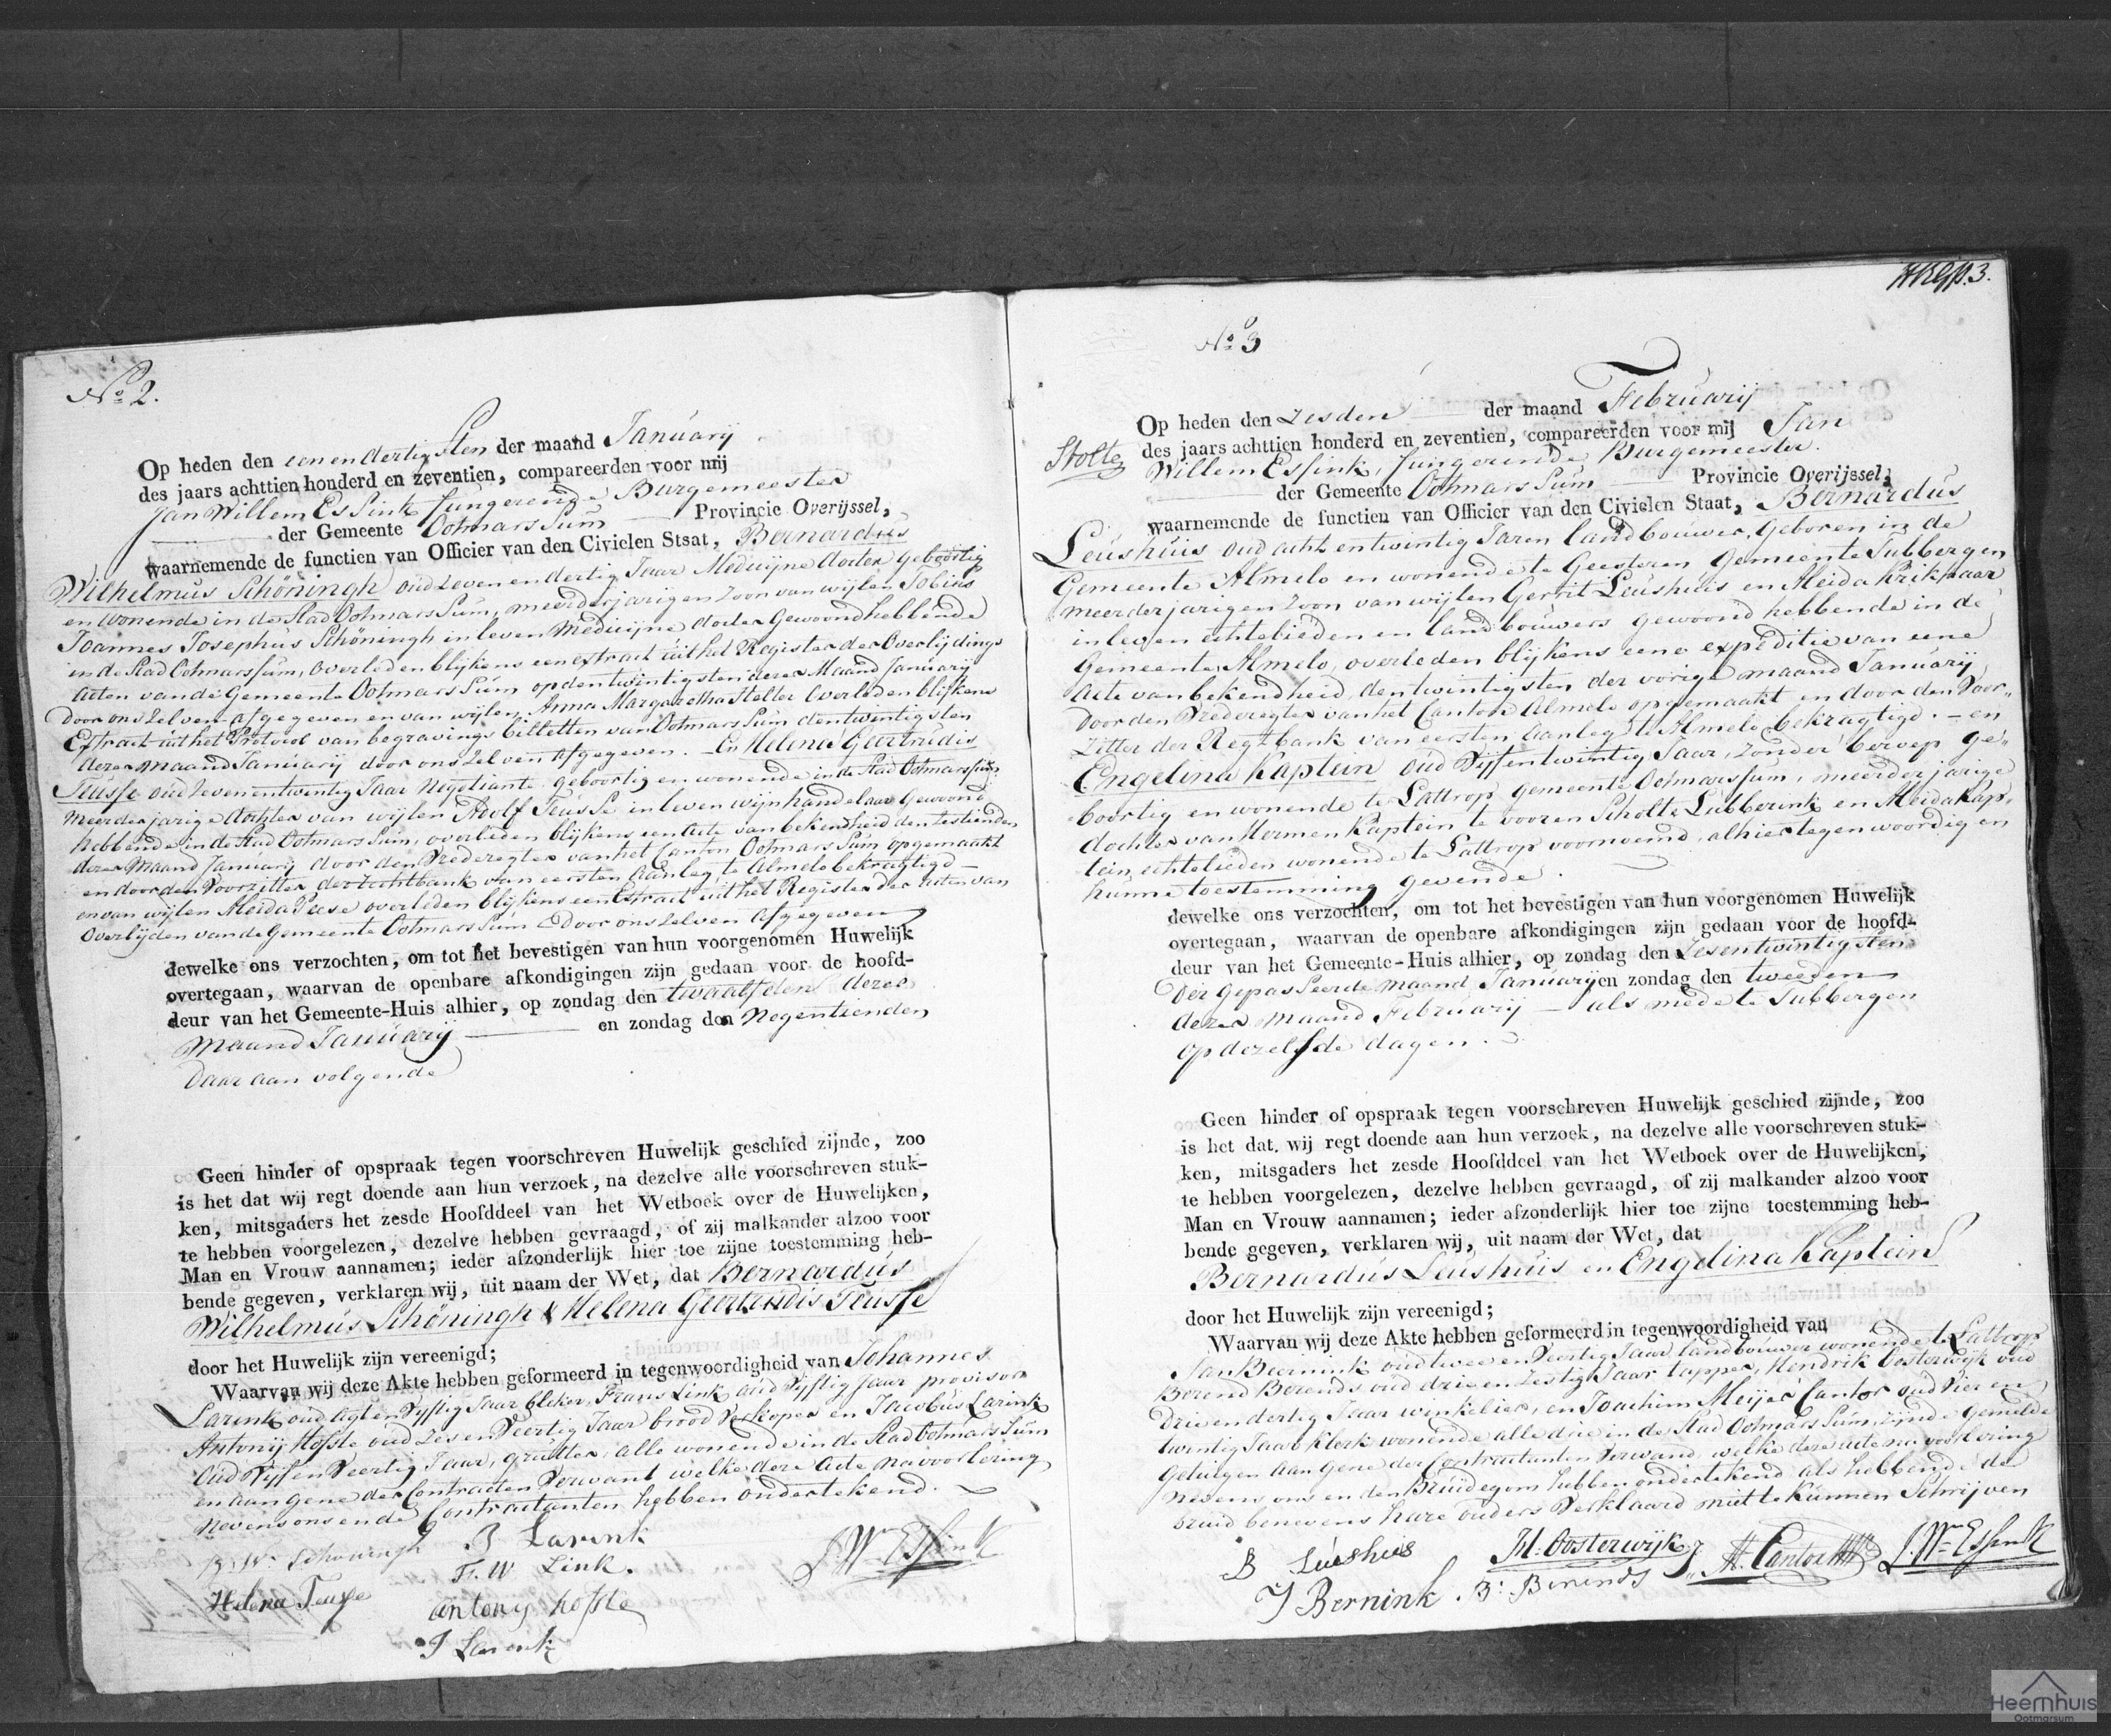 No 2.
Op heden den een en dertigsten der maand Januarij
des jaars achttien honderd en zeventien, compareerden voor mij
Jan Willem Essink fungerende Burgemeester
der Gemeente Ootmarssum Provincie Overijssel,
waarnemende de functien van Officier van den Civielen Staat, Bernardus
Wilhelmus Schöningh oud zeven en dertig Jaar Medicijne docter geboortig
en wonende in de Stad Ootmarssum, meerderjarigen zoon van wijlen Tobias
Joannes Josephus Schöningh in leven Medicijne docter Gewoond hebbende
in de Stad Ootmarssum, overleden blijkens een extract uit het Register der Overlijdings
Acten van de Gemeente Ootmarssum op den twintigsten dezer Maand Januarij
door ons zelven afgegeven en van wijlen Anna Margaretha Stelter Overleden blijkens
Extract uit het Protocol van begravings billetten van Ootmarssum den twintigsten
dezer maand Januarij door ons zelven Afgegeven. – En Helena Geertrudis
Teusse oud zeven en twintig Jaar Negotiante geboortig en wonende in de Stad Ootmarssum
meerderjarige dochter van wijlen Adolf Teusse in leven wijnhandelaar Gewoond
hebbende in de Stad Ootmarssum, overleden blijkens een Acte van bekendheid den zestienden
dezer Maand Januarij door den Vrederegter van het Canton Ootmarssum opgemaakt
en door den Voorzitter der Rechtbank van eersten Aanleg te Almelo bekragtigd –
en van wijlen Aleida Peese overleden blijkens een Extract uit het Register der Acten van
Overlijden van de Gemeente Ootmarssum door ons zelven Afgegeven
dewelke ons verzochten, om tot het bevestigen van hun voorgenomen Huwelijk
overtegaan, waarvan de openbare afkondigingen zijn gedaan voor de hoofd-
deur van het Gemeente-Huis alhier, op zondag den twaalfden dezer
maand Januarij en zondag den Negentienden
daar aan volgende
Geen hinder of opspraak tegen voorschreven Huwelijk geschied zijnde, zoo
is het dat wij regt doende aan hun verzoek, na dezelve alle voorschreven stuk-
ken, mitsgaders het zesde Hoofddeel van het Wetboek over de Huwelijken,
te hebben voorgelezen, dezelve hebben gevraagd, of zij malkander alzoo voor
Man en Vrouw aannamen; ieder afzonderlijk hier toe zijne toestemming heb-
bende gegeven, verklaren wij, uit naam der Wet, dat Bernardus
Wilhelmus Schöningh & Helena Geertrudis Teusse
door het Huwelijk zijn vereenigd;
Waarvan wij deze Akte hebben geformeerd in tegenwoordigheid van Johannes
Larink oud agt en Vyftig Jaar bleker, Frans Link oud Vyftig Jaar provisor
Antonij Hofste oud Zes en Veertig Jaar brood verkoper en Jacobus Larink
Oud Vijf en Veertig Jaar, grutter, alle wonende in de Stad Ootmarssum
en aan gene der Contracten Verwant welke deze Acte na voorlezing
nevens ons en de Contractanten hebben ondertekend.
B. Wm Schöningh
B Larink
F. W Link.
J. Wm Essink
Helena Teusse
antony hofste
J Larink
HKGp.3.
No 3
Op heden den zesden der maand Februarij
Stolte
des jaars achttien honderd en zeventien, compareerden voor mij Jan
Willem Essink, fungerende Burgemeester.
der Gemeente Ootmarssum Provincie Overijssel,
waarnemende de functien van Officier van den Civielen Staat, Bernardus
Leushuis oud acht en twintig Jaren landbouwer, Geboren in de
Gemeente Almelo en wonende te Geesteren Gemeente Tubbergen
meerderjarigen zoon van wijlen Gerrit Leushuis en Aleida Krikhaar
in leven echtelieden en landbouwers gewoond hebbende in de
Gemeente Almelo, overleden blijkens eene expeditie van eene
Acte van bekendheid den twintigsten der vorige maand Januarij
door den Vrederegter van het Canton Almelo opgemaakt en door den Voor„
zitter der Regtbank van eersten Aanleg te Almelo bekragtigd. – en
Engelina Kaptein oud Vijf en twintig Jaar, zonder beroep ge„
boortig en wonende te Lattrop Gemeente Ootmarssum, meerderjarige
dochter van Hermen Kaptein te vooren Scholte Lubberink en Aleida Kap„
tein, echtelieden wonende te Lattrop voornoemd, alhier tegenwoordig en
hunne toestemming gevende.
dewelke ons verzochten, om tot het bevestigen van hun voorgenomen Huwelijk
overtegaan, waarvan de openbare afkondigingen zijn gedaan voor de hoofd-
deur van het Gemeente-Huis alhier, op zondag den Zes en twintigsten
der gepasseerde maand Januarij en zondag den tweeden
dezer maand Februarij – als mede te Tubbergen
op dezelfde dagen.
Geen hinder of opspraak tegen voorschreven Huwelijk geschied zijnde, zoo
is het dat wij regt doende aan hun verzoek, na dezelve alle voorschreven stuk-
ken, mitsgaders het zesde Hoofddeel van het Wetboek over de Huwelijken,
te hebben voorgelezen, dezelve hebben gevraagd, of zij malkander alzoo voor
Man en Vrouw aannamen; ieder afzonderlijk hier toe zijne toestemming heb-
bende gegeven, verklaren wij, uit naam der Wet, dat
Bernardus Leushuis en Engelina Kaptein
door het Huwelijk zijn vereenigd;
Waarvan wij deze Akte hebben geformeerd in tegenwoordigheid van
Jan Beernink oud twee en Veertig Jaar landbouwer wonende te Lattrop
Berend Berends oud drie en zestig Jaar tapper, Hendrik Oosterwijk oud
drie en dertig Jaar winkelier, en Joachim Meijer Cantor oud Vier en
twintig Jaar Klerk wonende alle drie in de Stad Ootmarssum, zijnde Gemelde
Getuigen aan gene der Contractanten Verwand, welke deze acte na voorlezing
nevens ons en den Bruidegom hebben ondertekend als hebbende de
bruid benevens hare ouders Verklaard niet te Kunnen Schrijven
B Leushuis
H. Oosterwijk
M. Cantor
J. Wm Essink
J Bernink
B: Berends
Heemhuis
Ootmarsum